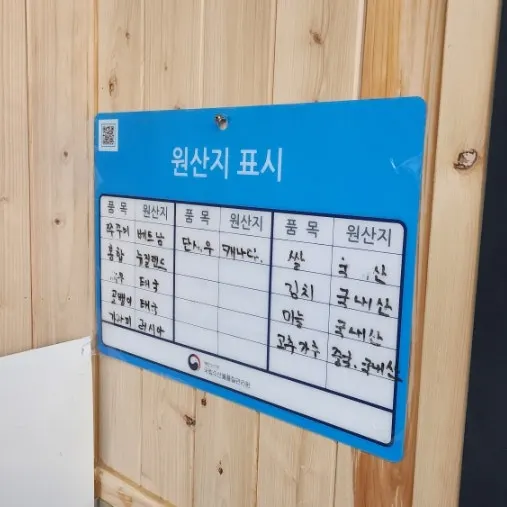 원산지 표시
품 목 원산지 품 목 원산지 품 목 원산지
쭈꾸미 베트남 단새우 캐나다 쌀
홍합 뉴질랜드 김치 국내산
태국 마늘 국내산
꼬뱅이 태국 고추가루 중국, 국내산
가자미 러시아
국립수산물품질관리원